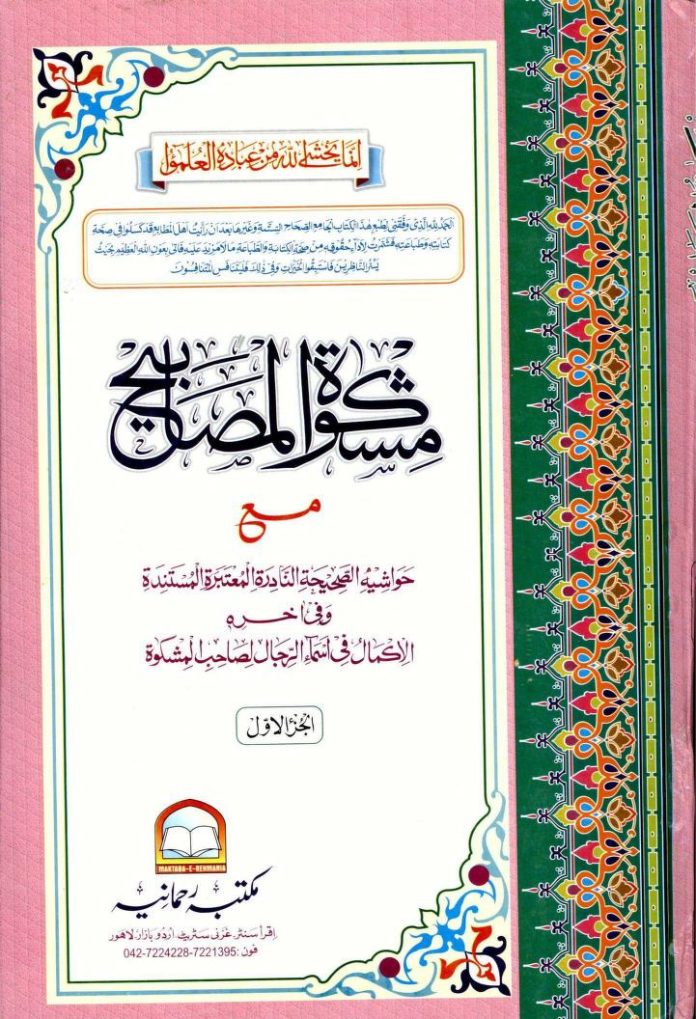 إنما يخشى الله من عباده العلمؤا
الحمد لله الذي وفقني لطبع هذا الكتاب الجامع الصحاح الستة وغيرها بعد ان رأيت اهل المطابع قد كسلوا في صحة
كتابته وطباعته فشمرت لاداء حقوقه من صحة الكتابة والطباعة ما لا مزيد عليه فاتى بعون الله العظيم بحيث
يسر الناظرين فاستبقوا الخيرات وفي ذلك فليتنافس المتنافسون
مشكوة المصابيح
مع
حواشيه الصحيحة النادرة المعتبرة المستندة
وفي اخره
الاكمال في اسماء الرجال لصاحب المشكوة
الجزء الاول
MAKTABA-E-REHMANIA
مکتبہ رحمانیہ
اقرأ سنٹر غزنی سٹریٹ اردو بازار لاہور
فون: 042-7224228-7221395